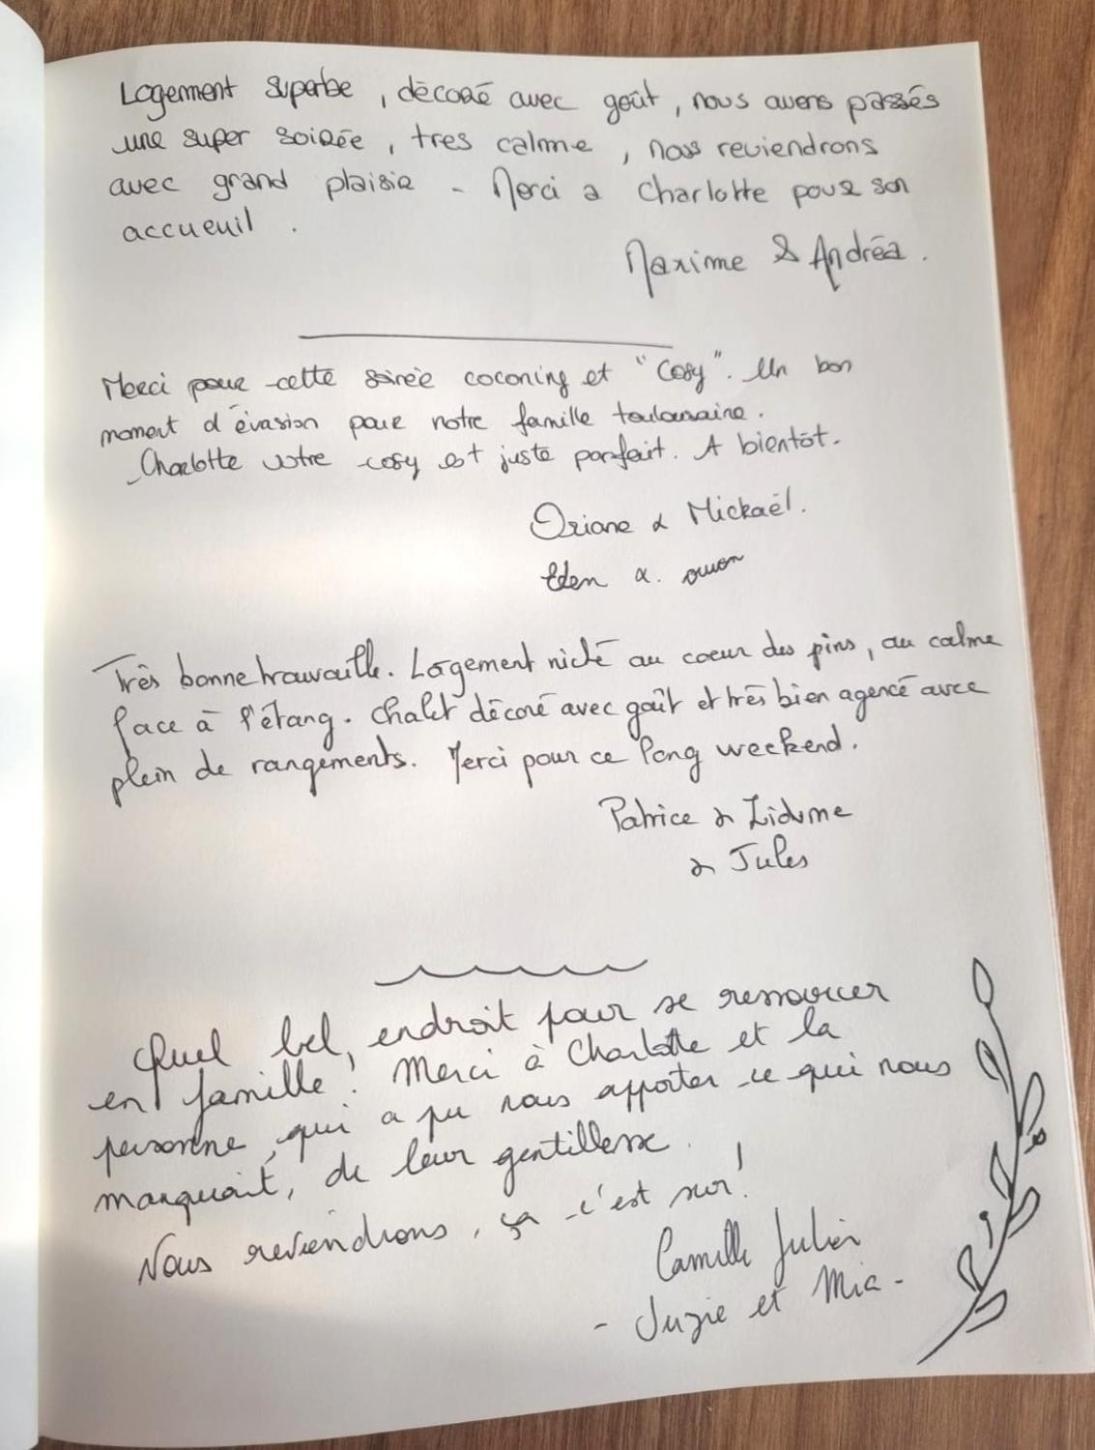 Logement superbe, décoré avec goût, nous avons passés
une super soirée, tres calme, nous reviendrons
avec grand plaisir - Merci a Charlotte pour son
accueuil.
Maxime & Andréa.
Merci pour cette soirée coconing et "Cosy". Un bon
moment d'évasion pour notre famille toulousaine.
Charlotte votre cosy est juste parfait. A bientôt.
Oriane & Mickaël.
Eden &. owen
Très bonne trouvaille. Logement niché au coeur des pins, au calme
face à l'étang. Chalet décoré avec goût et très bien agencé avec
plein de rangements. Merci pour ce long weekend.
Patrice &
& Jules
Quel bel endroit pour se ressourcer
en famille! Merci à Charlotte et la
personne qui a pu nous apporter ce qui nous
manquait, de leur gentillesse.
Nous reviendrons, ça c'est sur!
Camille Julien
- Suzie et Mia -